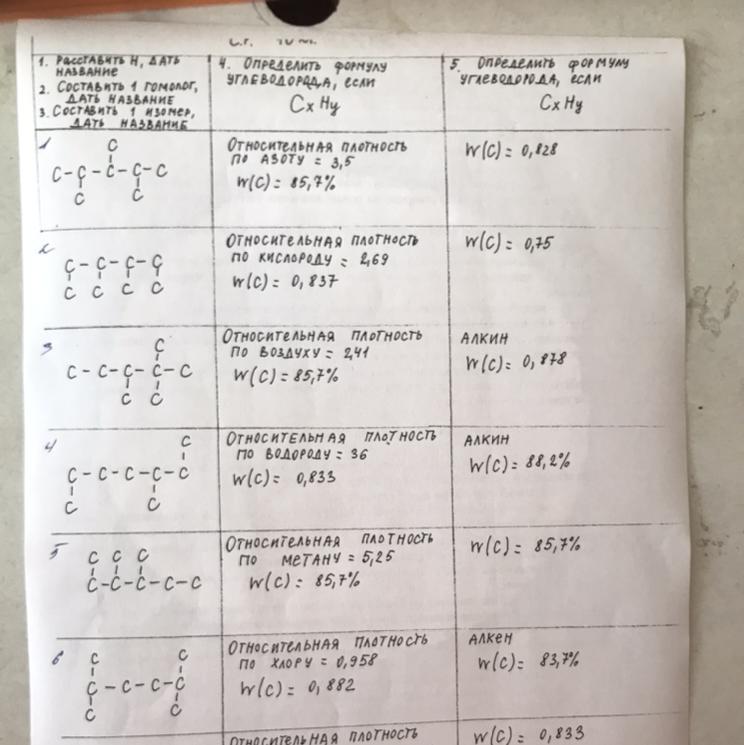 1. РАССТАВИТЬ Н, ДАТЬ
НАЗВАНИЕ
2. СОСТАВИТЬ 1 ГОМОЛОГ,
ДАТЬ НАЗВАНИЕ
3. СОСТАВИТЬ 1 ИЗОМЕР,
ДАТЬ НАЗВАНИЕ
4. ОПРЕДЕЛИТЬ ФОРМУЛУ
УГЛЕВОДОРОДА, ЕСЛИ
CxHy
5. ОПРЕДЕЛИТЬ ФОРМУЛУ
УГЛЕВОДОРОДА, ЕСЛИ
CxHy
1
C
C-C-C-C-C
C C
ОТНОСИТЕЛЬНАЯ ПЛОТНОСТЬ
ПО АЗОТУ = 3,5
W(C) = 85,7%
W(C) = 0,828
2
C - C - C - C
C C C C
ОТНОСИТЕЛЬНАЯ ПЛОТНОСТЬ
ПО КИСЛОРОДУ = 2,69
W(C) = 0,837
W(C) = 0,75
3
C
C - C - C - C - C
C C
ОТНОСИТЕЛЬНАЯ ПЛОТНОСТЬ
ПО ВОЗДУХУ = 2,41
W(C) = 85,7%
АЛКИН
W(C) = 0,878
4
C
C - C - C - C - C
C C
ОТНОСИТЕЛЬНАЯ ПЛОТНОСТЬ
ПО ВОДОРОДУ = 36
W(C) = 0,833
АЛКИН
W(C) = 88,2%
5
C C C
C-C-C-C-C
ОТНОСИТЕЛЬНАЯ ПЛОТНОСТЬ
ПО МЕТАНУ = 5,25
W(C) = 85,7%
W(C) = 85,7%
6
C C
C - C - C - C
C C
ОТНОСИТЕЛЬНАЯ ПЛОТНОСТЬ
ПО ХЛОРУ = 0,958
W(C) = 0,882
АЛКЕН
W(C) = 83,7%
ОТНОСИТЕЛЬНАЯ ПЛОТНОСТЬ
W(C) = 0,833